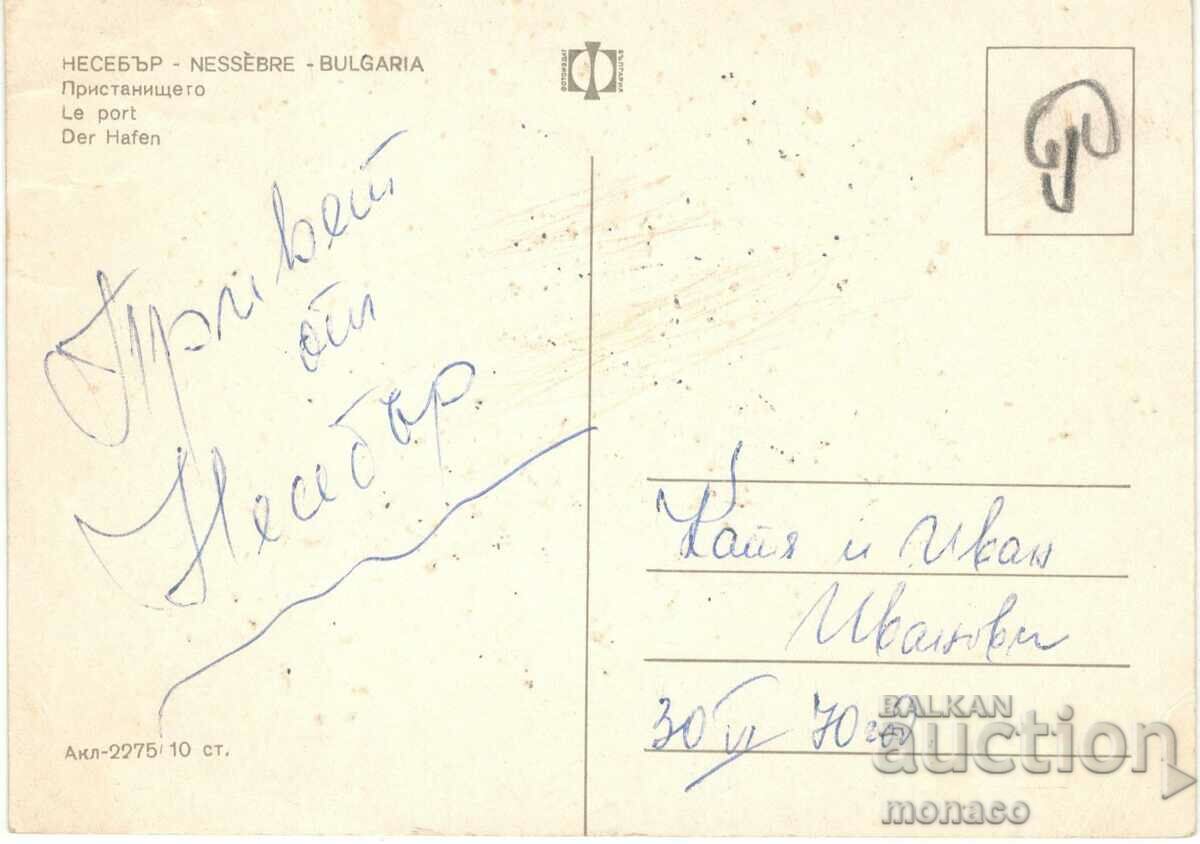 НЕСЕБЪР - NESSÈBRE - BULGARIA
Пристанището
Le port
Der Hafen
ФОТОИЗДАТ
БЪЛГАРИЯ
Привет
от
Несебър
Катя и Иван
Иванови
30 VI 70 год.
Акл-2275/10 ст.
BALKAN
auction
monaco